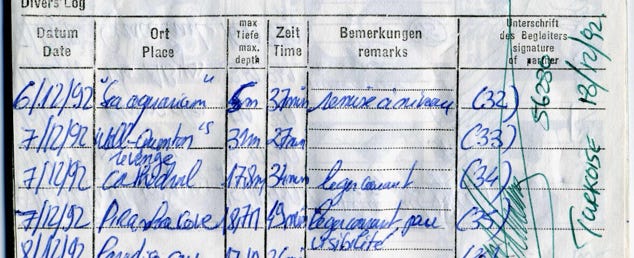 Divers Log
Datum Date Ort Place max Tiefe max. depth Zeit Time Bemerkungen remarks Unterschrift des Begleiters signature of partner
6/12/92 "Sea aquarium" 5m 37min remise à niveau (32)
7/12/92 31m 27min (33)
revenge
7/12/92 cathédral 17,8m 34min leger courant (34)
7/12/92 cove 18,7m 49min leger courant peu (35)
visibilité
8/12/92
56230
TURKOISE 12/12/92